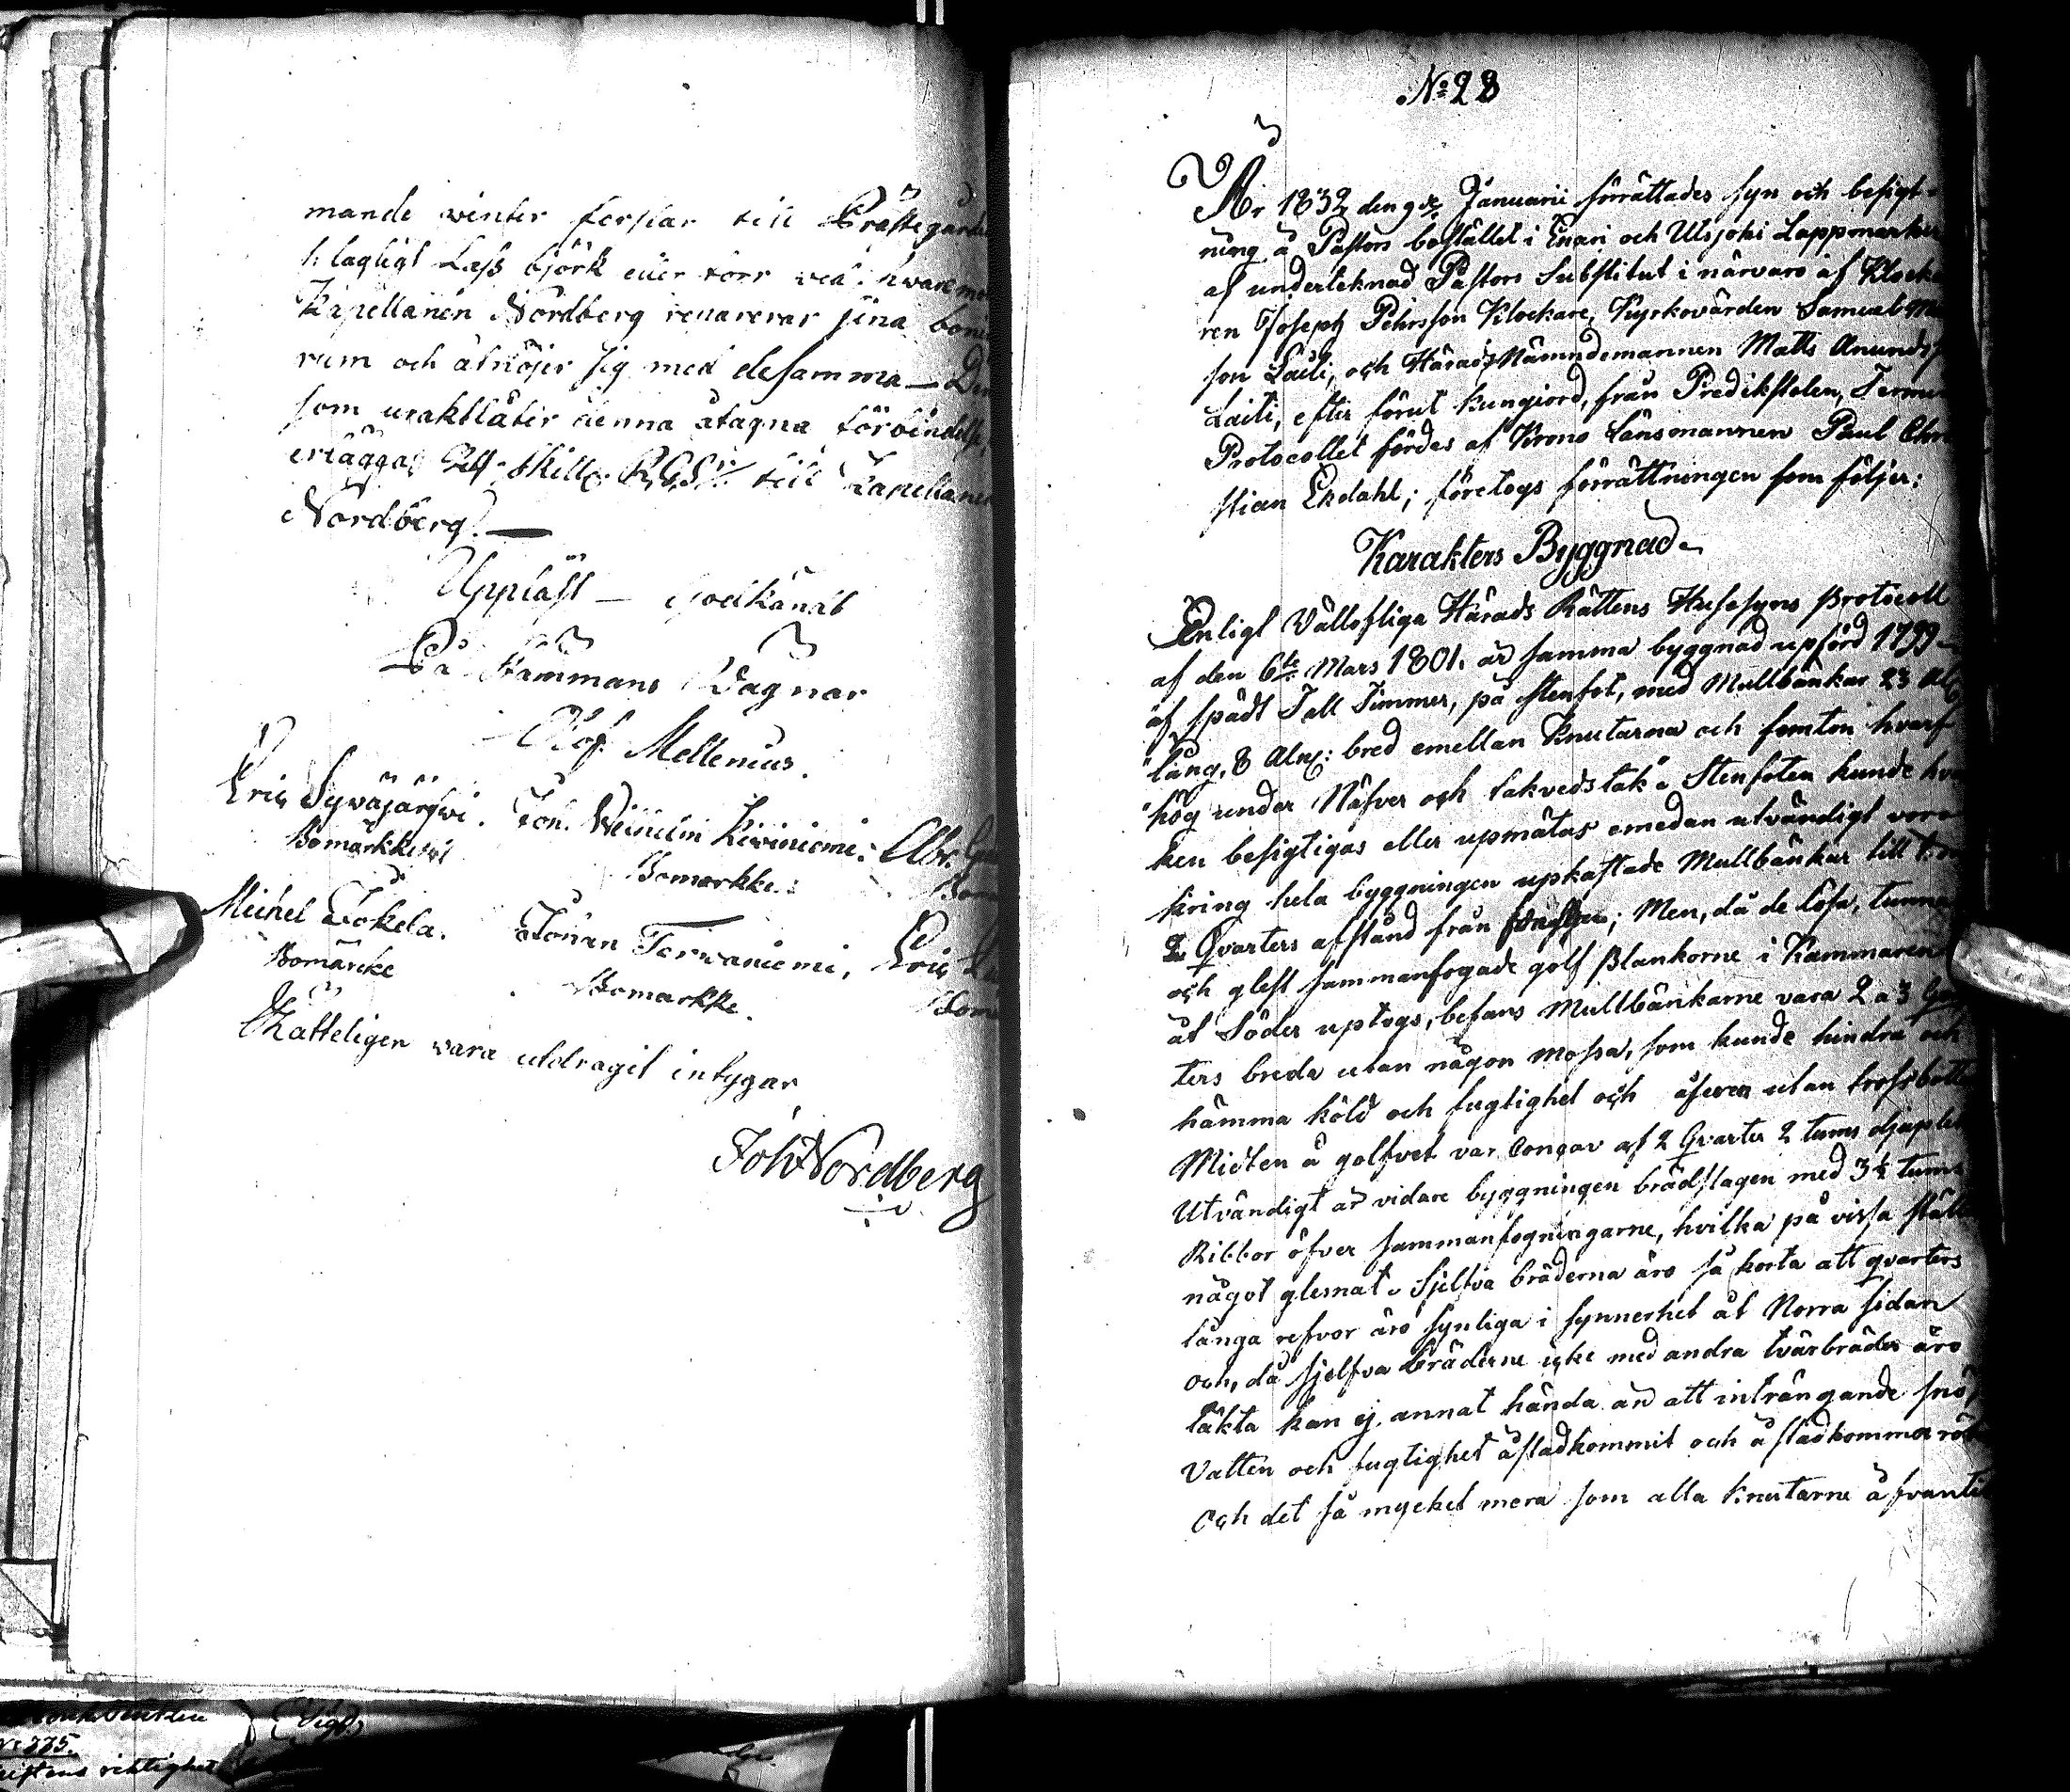 mande winter forslar till Prästegården
1. lagligt Lass björk eller torr ved. hvaremot
Kapellanen Nordberg reparerar sina bonings
rum och åtnöjer sig med desamma — Den
som uraktlåter denna åtagna förbindelse,
erlägga skill. RGS till Kapellanen
Nordberg. —
Uppläst — Godkändt
På Stämmans Vägnar
Olof Mellenius.
Eric Syväjärfwi. Joh. Wilhelm Kiviniemi. Abr.
Bomärkke Bomärkke
Michel Jokela. Johan Terwaniemi, Eric
Bomärcke Bomarkke.
Rätteligen vara utdragit intygar
Joh Nordberg
No 28
År 1832 den 9de Januarii förrättades syn och besigt-
ning å Pastors bostället i Enari och Utsjoki Lappmarker
af underteknad Pastors Substitut i närvaro af Klocka
ren Joseph Pehrsson Klockare, Kyrkovärden Samuel
son Laiti, och Härads Nämndemannen Matts Anunds
Laiti, efter förut kungiord, från Predikstolen, Termin
Protocollet fördes af Krono Länsmannen Paul Chri
stian Ekdahl; företogs förrättningen som följer:
Karakters Byggnad
Enligt Vällofliga Härads Rättens Husesyns Protocoll
af den 6te Mars 1801. är samma byggnad upförd 1799
af spädt Tall Timmer, på stenfot, med Mullbänkar 23 Aln
"lång, 8 Aln: bred emellan Knutarna och femton hvarf
"hög under Näfver och takvedstak" Stenfoten kunde hvar
ken besigtigas eller upmätas emedan utvändigt voro
kring hela byggningen upkastade Mullbänkar till
2 Qvarters afstånd från ; Men, då de lösa, tunna
och glest sammanfogade golf Plankorne i Kammaren
åt Söder uptogs, befans Mullbänkarne vara 2 a 3 Qvar
ters breda utan någon mossa, som kunde hindra och
hämma köld och fugtighet och äfven utan trossbotten
Midten å golfvet var Concav af 2 Qvarter 2 tums djuplek
Utvändigt är vidare byggningen brädslagen med 3½ tums
Ribbor öfver sammanfogningarne, hvilka på vissa ställen
något glesnat. Sjelfva bräderna äro så korta att qvarters
långa refvor äro synliga i synnerhet åt Norra sidan
och, då sjelfva bräderne icke med andra tvärbräder äro
täkta kan ej annat hända än att inträngande snö,
Vatten och fugtighet åstadkommit och åstadkommer röta
Och det så mycket mera som alla Knutarne å framti